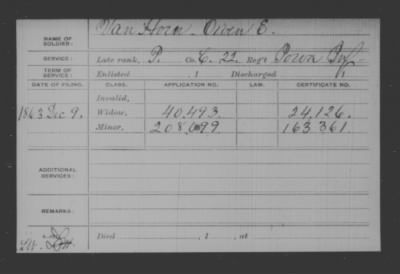 NAME OF SOLDIER: Van Horn, Owen E.
SERVICE: Late rank, P. Co. C, 22 Reg't Iowa Inf.
TERM OF SERVICE: Enlisted , 1 Discharged , 1
DATE OF FILING. CLASS. APPLICATION NO. LAW. CERTIFICATE NO.
Invalid,
1863 Dec 9. Widow, 40,493. 24,126.
Minor, 163.361
ADDITIONAL SERVICES:
REMARKS:
Died , 1 , at